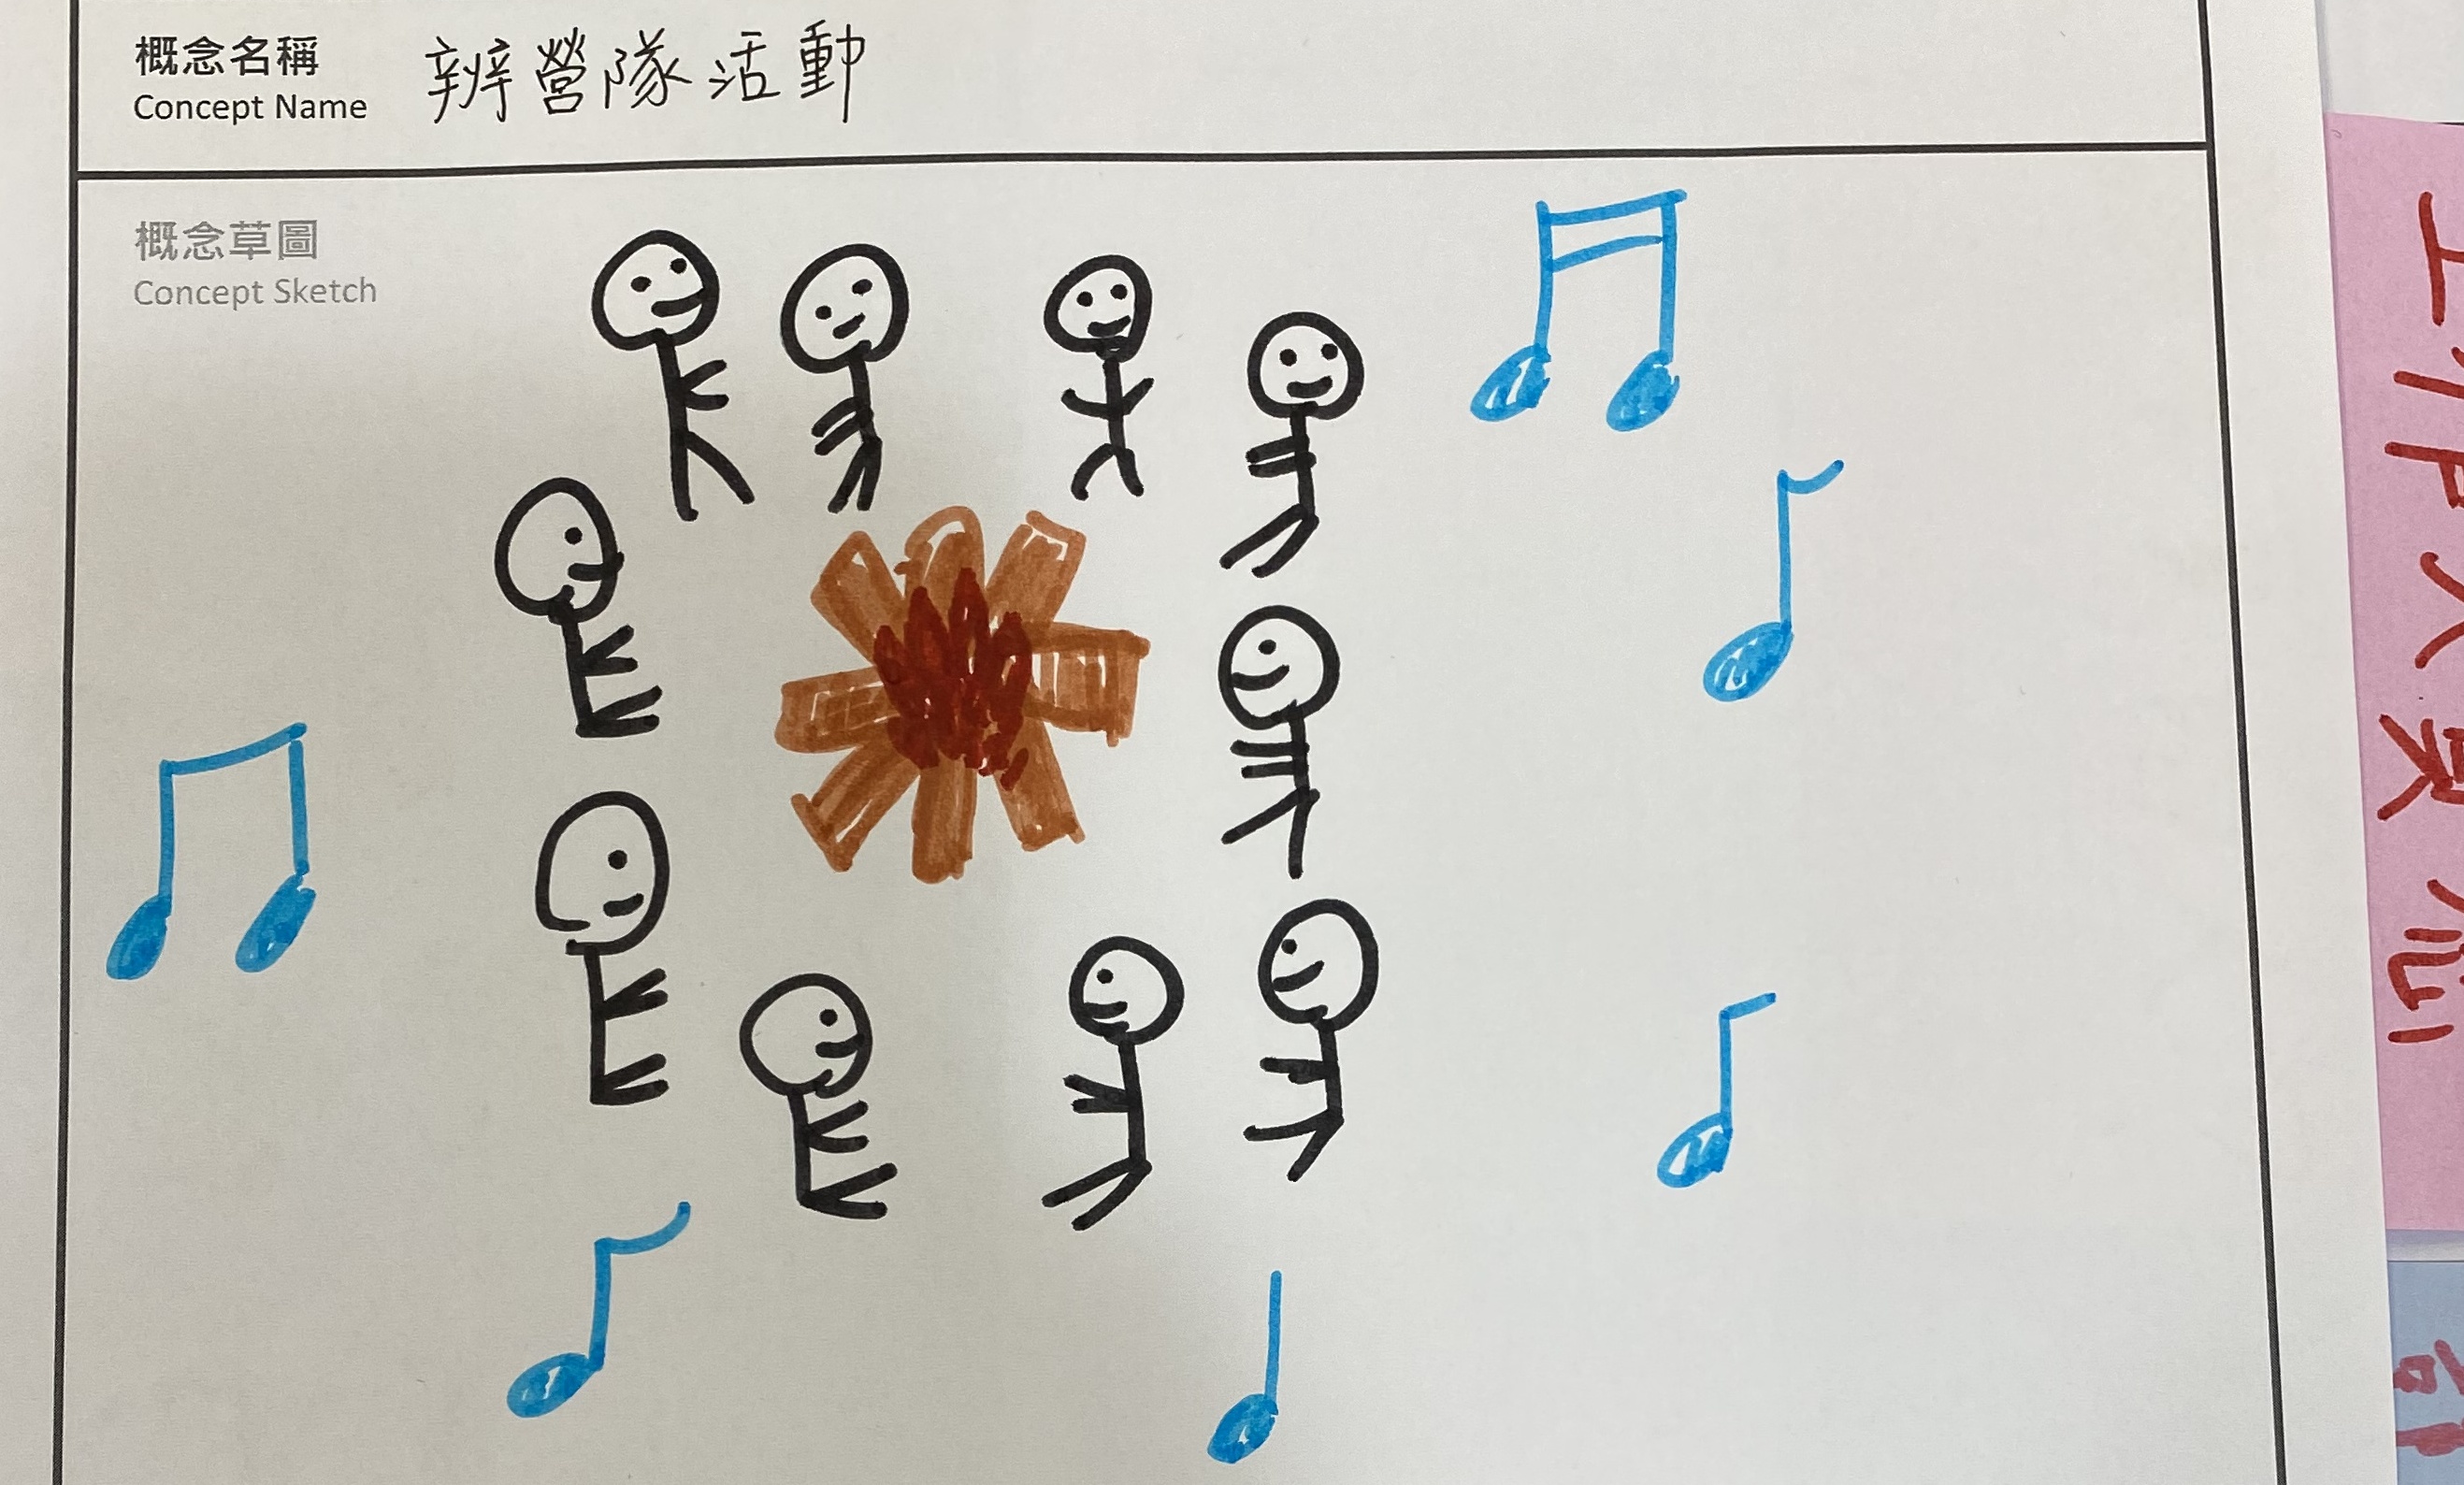 概念名稱
Concept Name
辨營隊活動
概念草圖
Concept Sketch